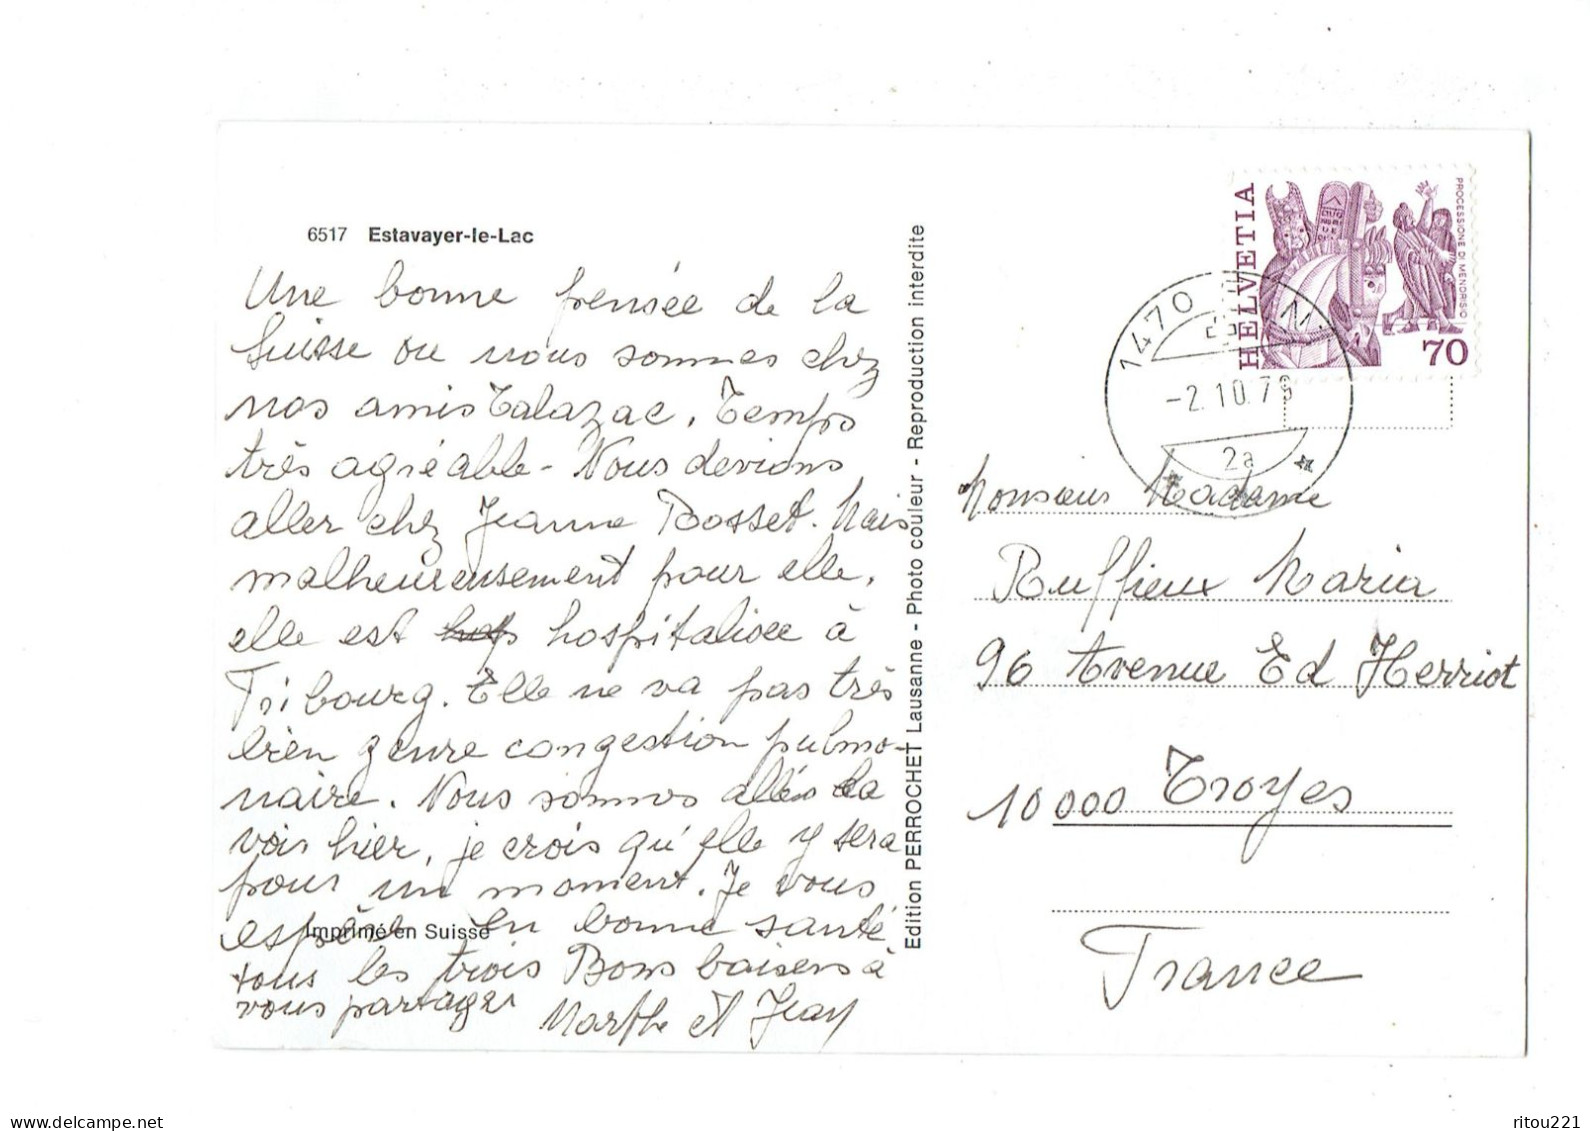 6517 Estavayer-le-Lac
Une bonne pensée de la
Suisse ou nous sommes chez
nos amis Talazac. Temps
très agréable - Nous devions
aller chez Jeanne Bosset. Mais
malheureusement pour elle,
elle est hop hospitalisée à
Fribourg. Elle ne va pas très
bien genre congestion pulmo-
naire. Nous sommes allés la
voir hier, je crois qu'elle y sera
pour un moment. Je vous
espère en bonne santé
Imprimé en Suisse
tous les trois Bons baisers à
vous partager Marthe et Jean
Edition PERROCHET Lausanne - Photo couleur - Reproduction interdite
HELVETIA
PROCESSIONE DI MENDRISIO
70
1470
-2.10.78
2a
Monsieur Madame
Ruffieux Maria
96 Avenue Ed Herriot
10000 Troyes
France
ritou221